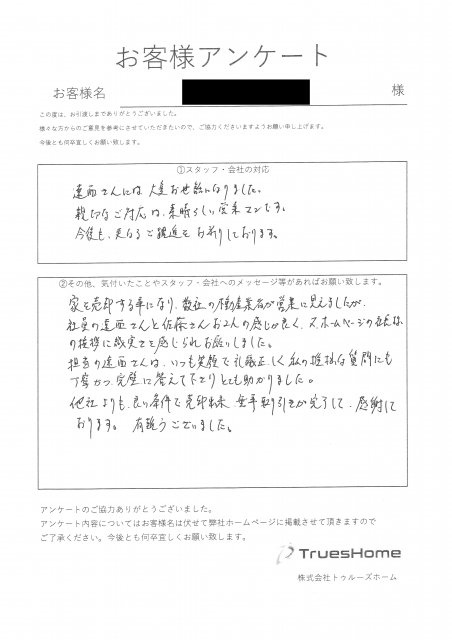 お客様アンケート
お客様名 様
この度は、お引渡しまでありがとうございました。
様々な方からのご意見を参考にさせていただきたいので、ご協力くださいますようお願い申し上げます。
今後とも何卒宜しくお願い致します。
①スタッフ・会社の対応
達面さんには大変お世話になりました。
親切なご対応は、素晴らしい営業マンです。
今後も、更なるご躍進をお祈りしております。
②その他、気付いたことやスタッフ・会社へのメッセージ等があればお願い致します。
家を売却する事になり、数社の不動産業者が営業に見えましたが、
社員の達面さんと佐藤さんお二人の感じが良く、又、ホームページの社長様
の挨拶に誠実さを感じられお願いしました。
担当の達面さんは、いつも笑顔で礼儀正しく私の些細な質問にも
丁寧かつ、完璧に答えて下さりとても助かりました。
他社よりも、良い条件で売却出来、無事取り引きが完了して、感謝して
おります。有難うございました。
アンケートのご協力ありがとうございました。
アンケート内容についてはお客様名は伏せて弊社ホームページに掲載させて頂きますので
ご了承ください。今後とも何卒宜しくお願い致します。
TruesHome
株式会社トゥルーズホーム